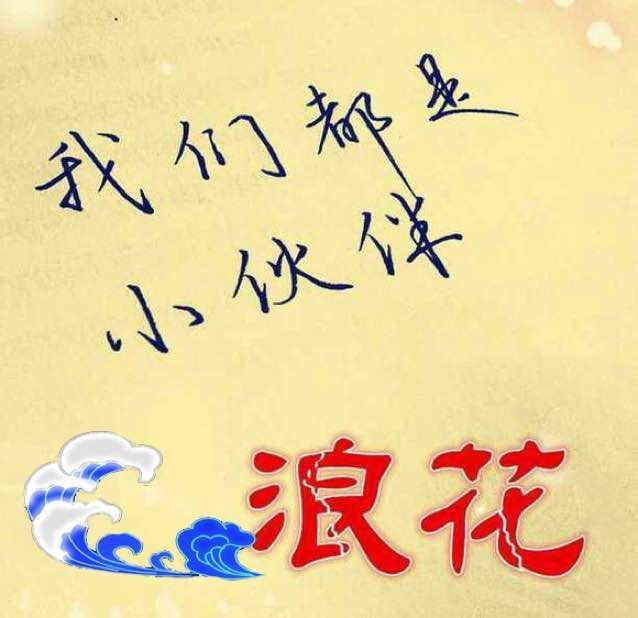 我们都是
小伙伴
浪花